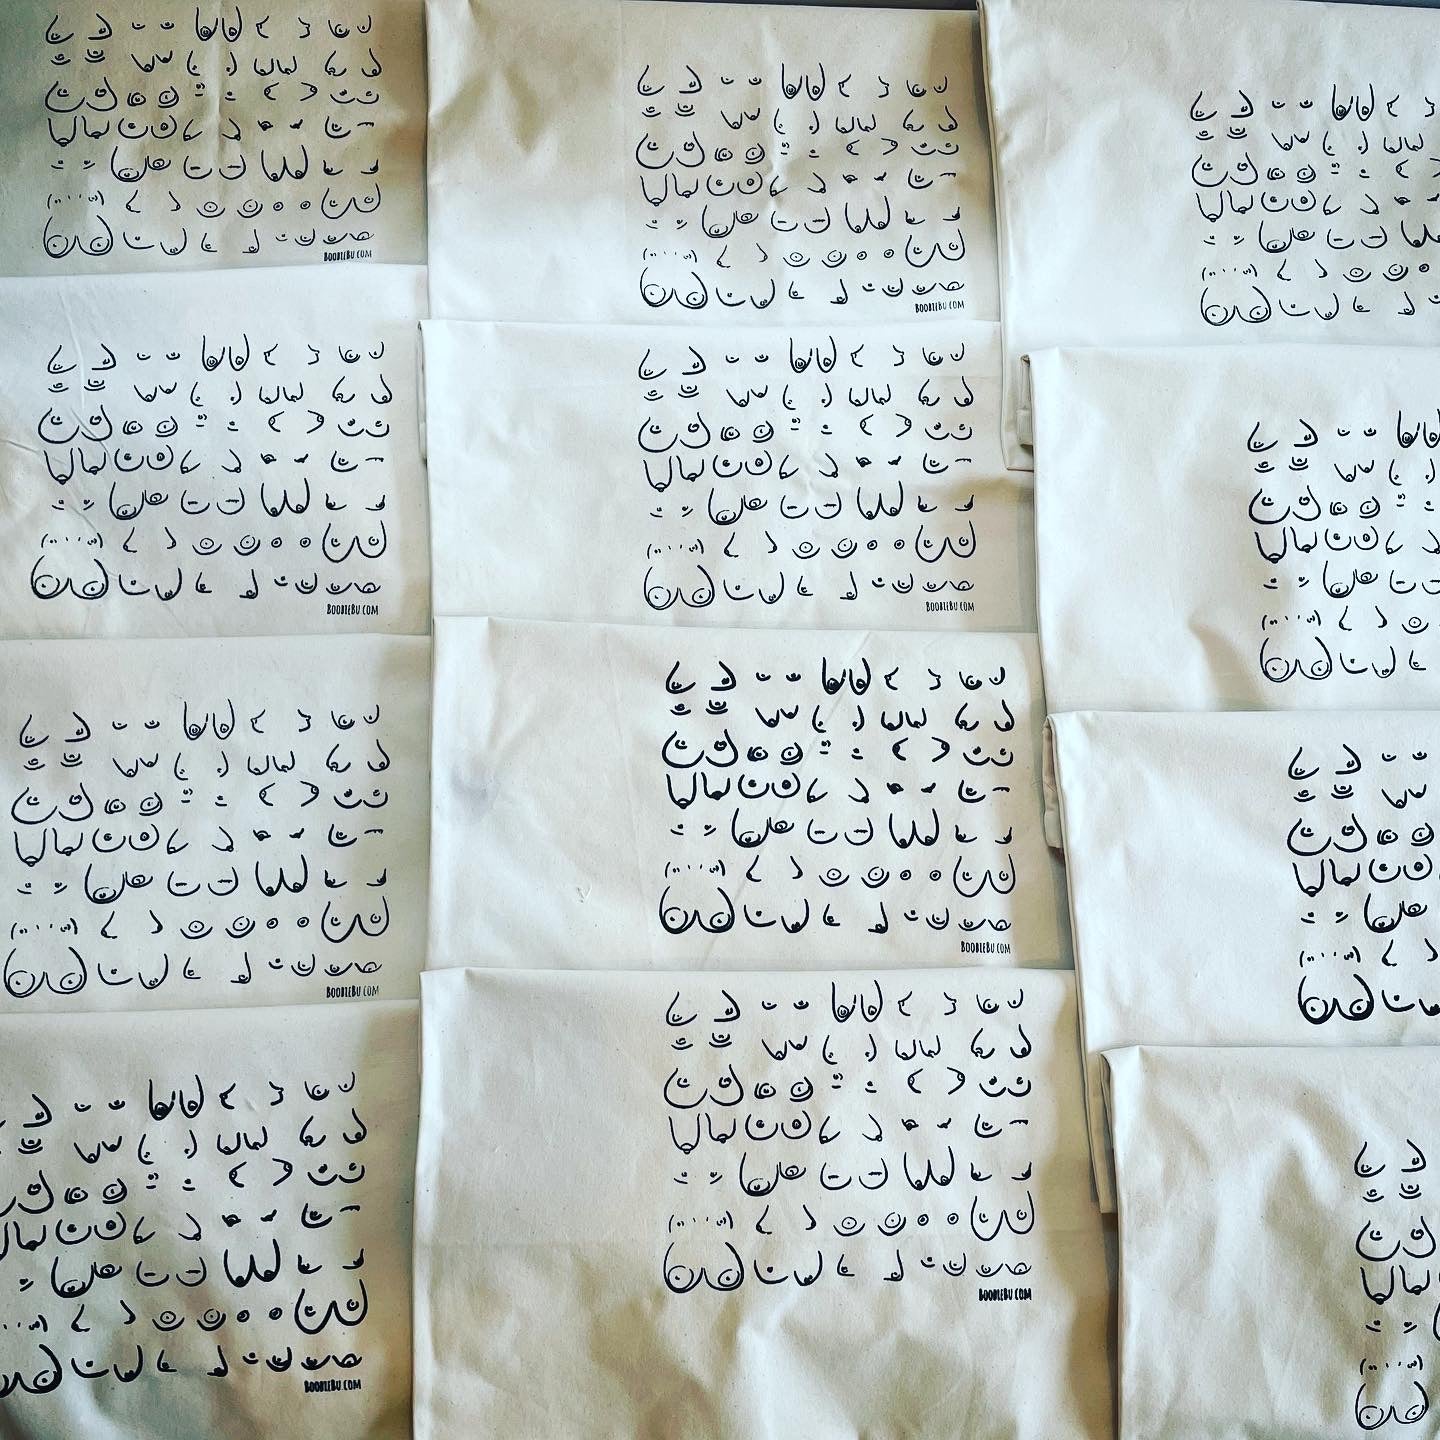 BOOBIEBU.COM
BOOBIEBU.COM
BOOBIEBU.COM
BOOBIEBU.COM
BOOBIEBU.COM
BOOBIEBU.COM
BOOBIEBU.COM
BOOBIEBU.COM